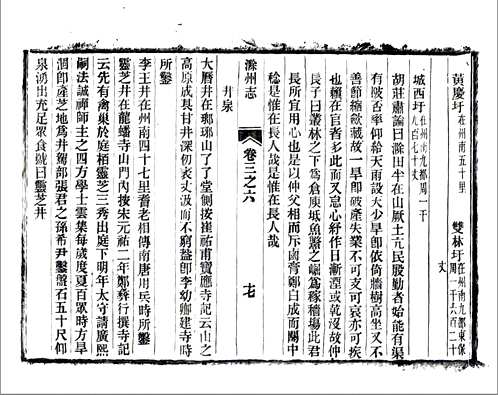 黃慶圩在州南五十里
雙林圩在州南九都東保周一千六百二十丈
城西圩在州南九都周一千九百七十丈
胡莊肅論曰滁田半在山厥土亢民股勤者始能有渠
有陂否率仰給天雨設天少旱即依倚牆樹高坐又不
善節縮歛藏故一旱即破產失業不可支可哀亦可疾
也顧在官者多此而又怠心紓作日漸湮或乾沒故仲
長子曰叢林之下為倉庾坻魚鼈之堀為稼穡塲此君
長所宜用心也是以仲父相而斥鹵膏鄭白成而關中
稔是惟在長人哉是惟在長人哉
滁州志
卷三之六
十七
井泉
大曆井在瑯琊山了了堂側按崔祐甫寶應寺記云山之
高原成具甘井深仞衰丈汲而不窮蓋即李幼卿建寺時
所鑿
李王井在州南四十七里耆老相傳南唐用兵時所鑿
靈芝井在龍蟠寺山門內按宋元祐二年鄭彝行撰寺記
云先有禽巢於庭栢靈芝三秀出庭下明年太守請廣熙
嗣法誠禪師主之四方學士雲集每歲度夏百眾時方旱
涸即產芝地為井駕部張君之孫希尹鑿盤石五十尺仰
泉湧出充足眾食號曰靈芝井